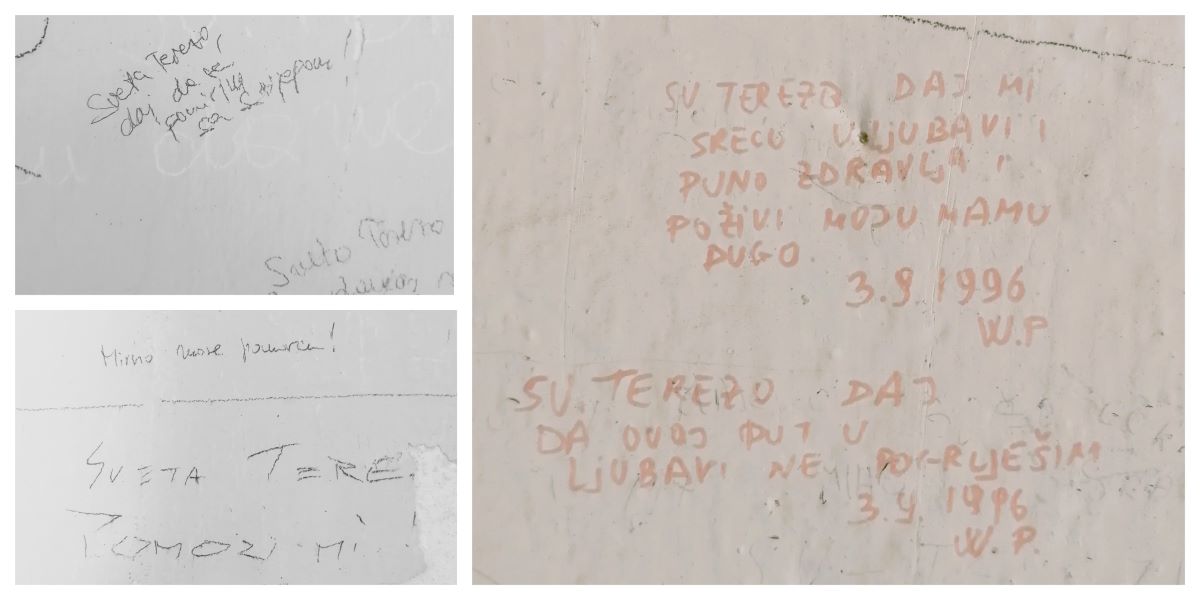 Sveta Terezo,
daj da se
pomirim
sa Stijepom!
Sveta Terezo
Mirno more pomorcu!
SVETA TERE
POMOZI MI
SV TEREZO DAJ MI
SREĆU U LJUBAVI I
PUNO ZDRAVLJA I
POŽIVI MOJU MAMU
DUGO.
3.9.1996
W.P
SV. TEREZO DAJ
DA OVAJ PUT U
LJUBAVI NE POGRIJEŠIM
3.9 1996
W.P.